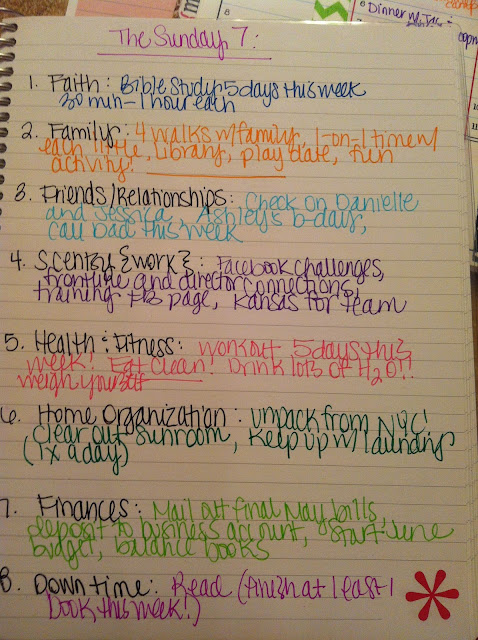 Dinner w/
The Sunday 7:
1. Faith: Bible Study 5 days this week
30 min - 1 hour each
2. Family: 4 walks w/family, 1-on-1 time w/
each little, library, play date, fun
activity!
3. Friends/Relationships: Check on Danielle
and Jessica, Ashley's b-day,
call Dad this week
4. Scentsy {work}: Facebook challenges,
frontline and director connections,
training FB page, Kansas for team
5. Health & Fitness: workout 5 days this
week! Eat clean! Drink lots of H2O!!
weigh yourself
6. Home Organization: unpack from NYC!
clear out sunroom, keep up w/ laundry
(1x a day)
7. Finances: Mail out final May bills,
deposit to business account, start June
budget, balance books
8. Down time: Read (finish at least 1
book this week!)